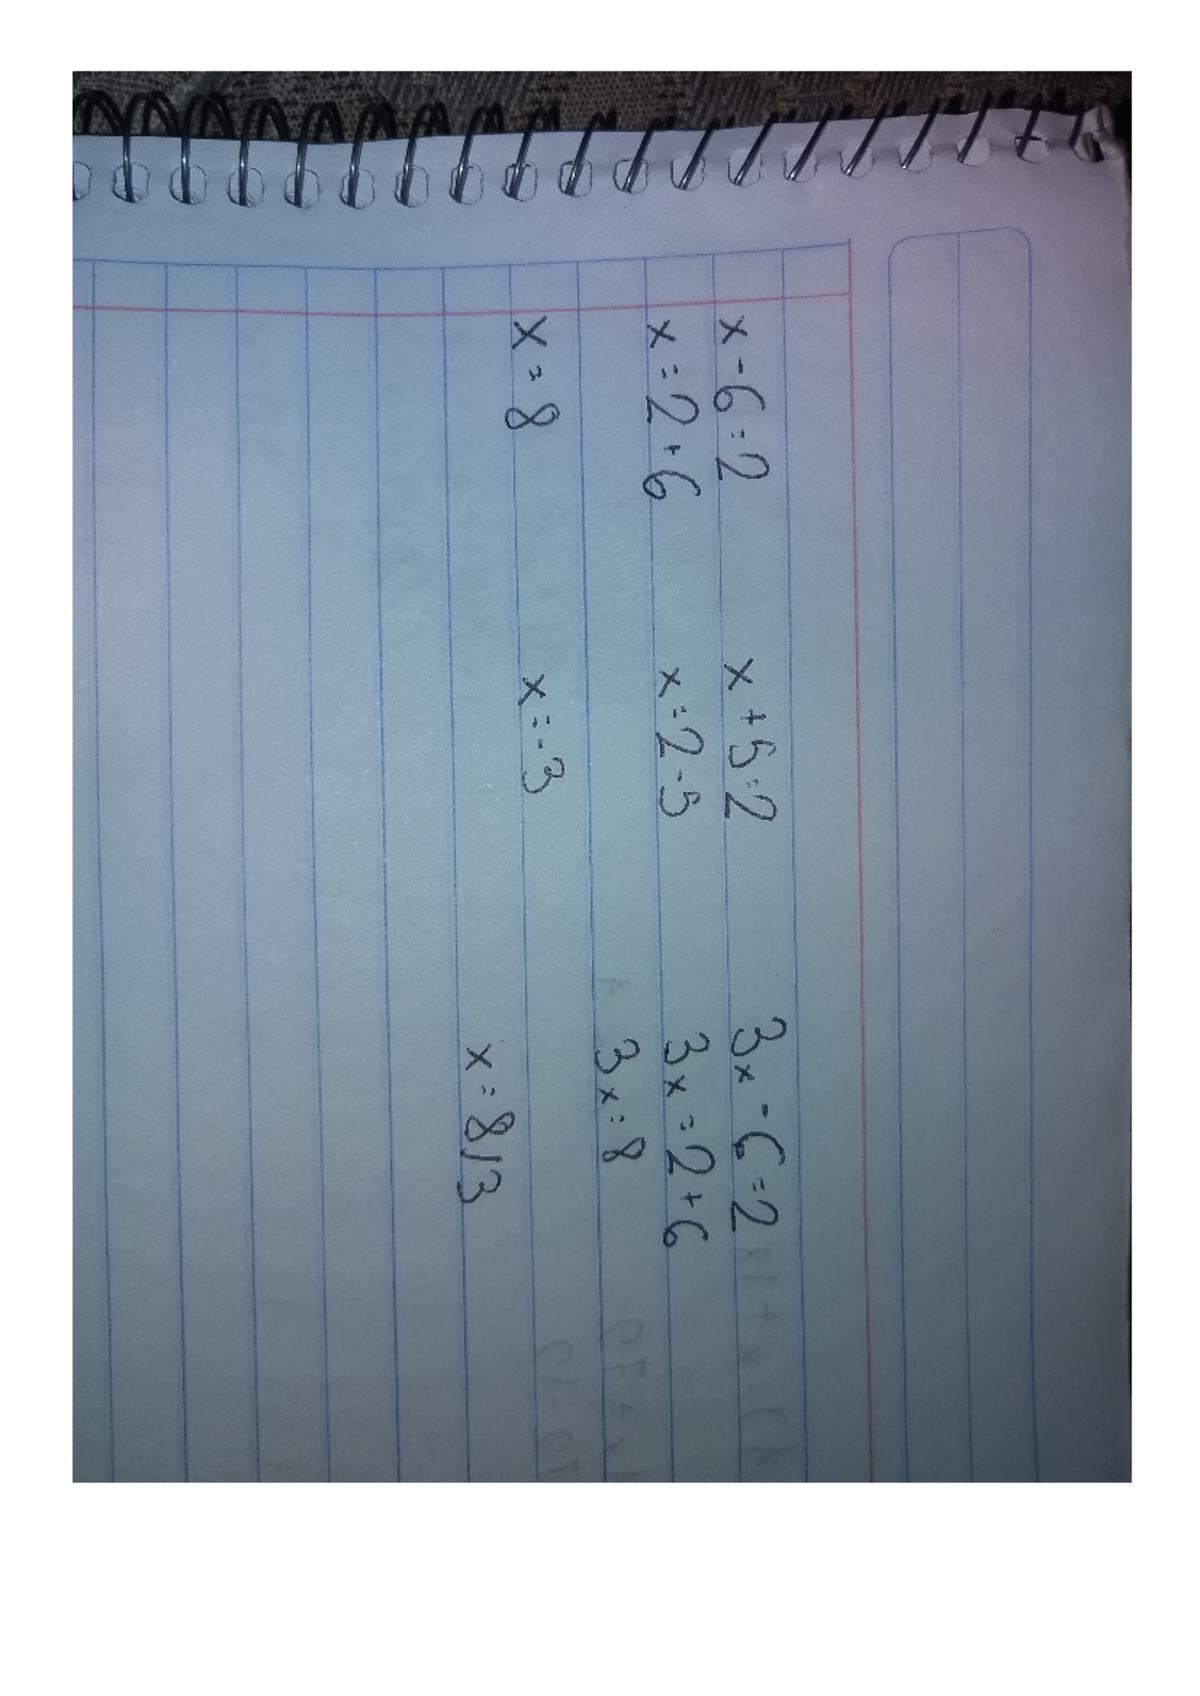 x - 6 = 2
x = 2 + 6
x = 8
x + 5 = 2
x = 2 - 5
x = -3
3x - 6 = 2
3x = 2 + 6
3x = 8
x = 8/3